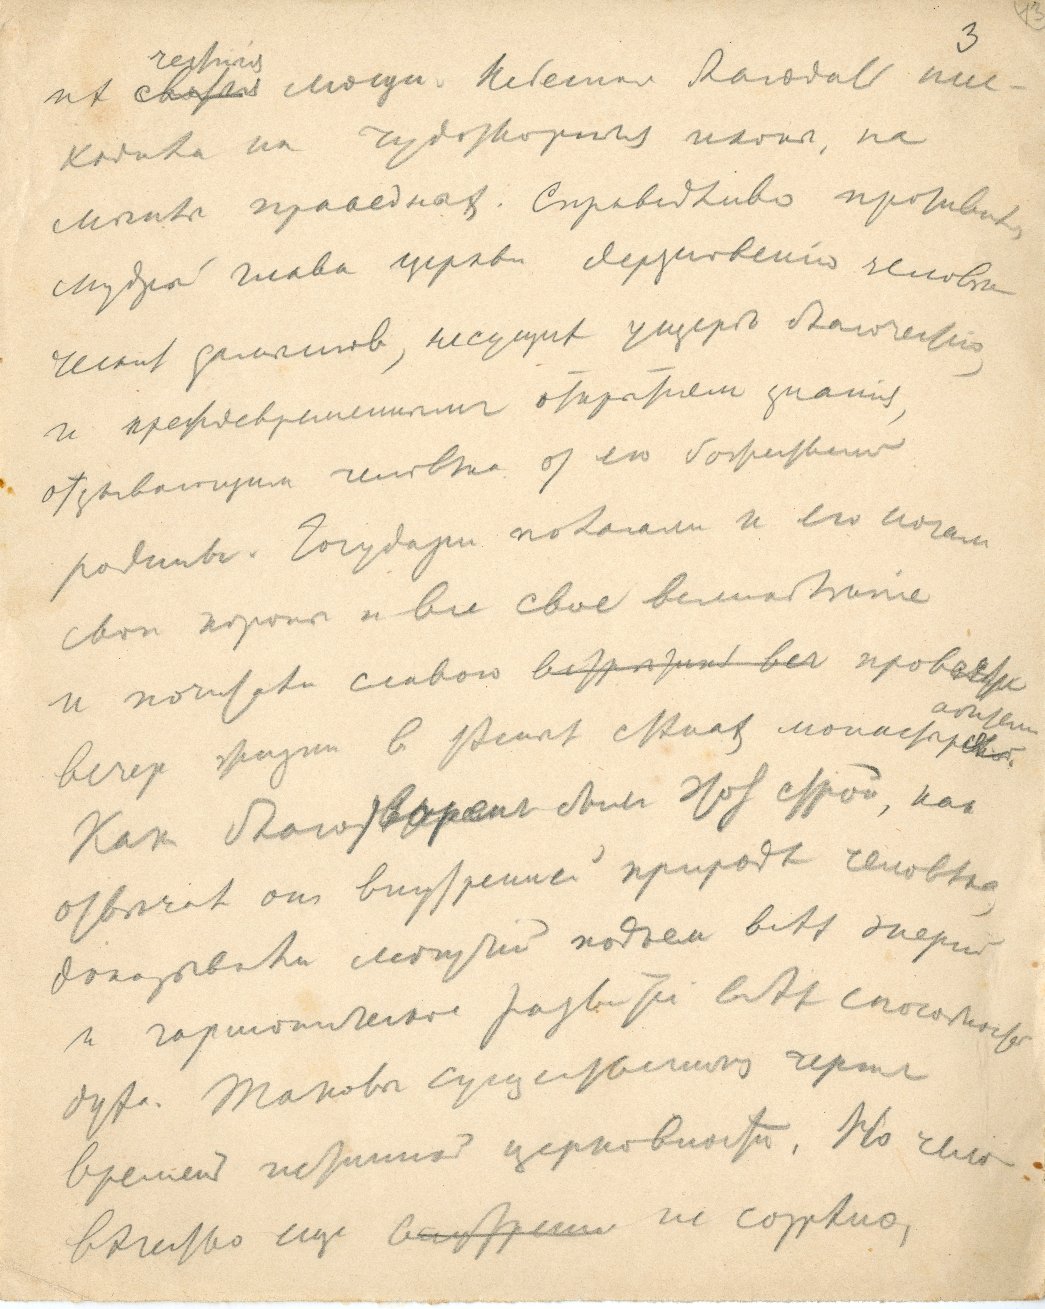 3
честныя
их святыя мощи. Небесная благодать нис-
ходила на чудотворныя иконы, на
могилы праведных. Справедливо противился
мудрый глава церкви дерзновению человѣ-
ческих замыслов, несущих ущерб благочестію,
и преждевременным открытіям знанія,
отзывающим человѣка от его божественной
родины. Государи полагали к его ногам
свои короны и все свое великолѣпіе
и почитали славою провести
вечер жизни в тѣсных стѣнах
Как благотворен был этот строй, как
отвѣчал он внутренней природѣ человѣка,
доказывали могучій подъем всѣх энергій
и гармоническое развитіе всѣх способностей
духа. Таковы существенныя черты
времен истинной церковности. Но чело-
вѣчество еще внутренно не созрѣло,